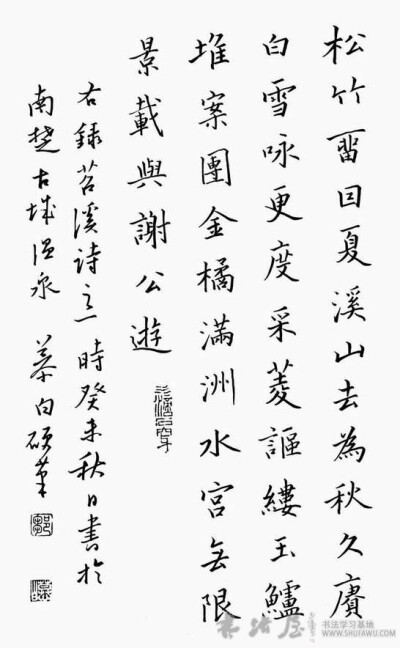 松竹畱囙夏溪山去為秋久賡
白雪咏更度采菱謳縷玉鱸
堆案團金橘滿洲水宮無限
景載與謝公遊
右録苕溪詩之一時癸未秋日書於
南楚古城温泉 慕白
书法学习基地
WWW.SHUFAWU.COM